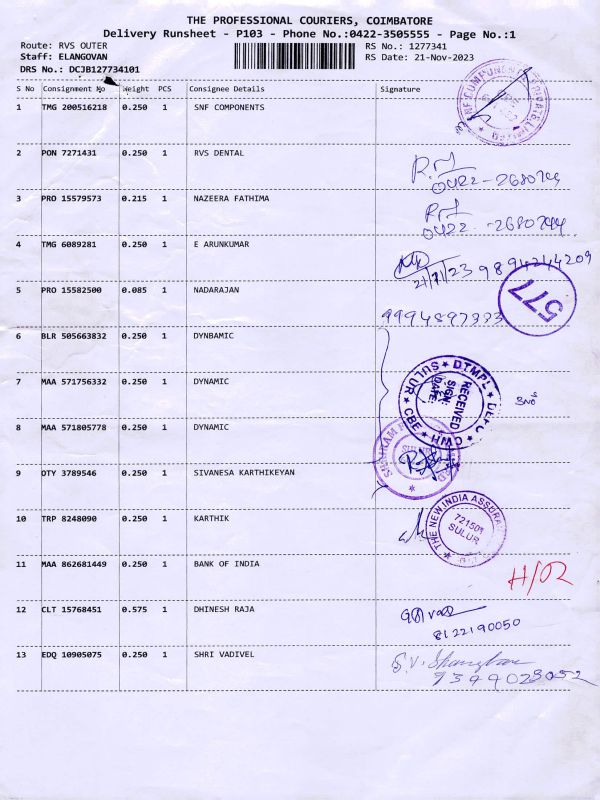 THE PROFESSIONAL COURIERS, COIMBATORE
Delivery Runsheet - P103 - Phone No.:0422-3505555 - Page No.:1
Route: RVS OUTER
RS No.: 1277341
Staff: ELANGOVAN
RS Date: 21-Nov-2023
DRS No.: DCJB127734101
S No Consignment No Weight PCS Consignee Details Signature
1 TMG 200516218 0.250 1 SNF COMPONENTS
2 PON 7271431 0.250 1 RVS DENTAL
0422-2680744
3 PRO 15579573 0.215 1 NAZEERA FATHIMA
0422 -2680744
4 TMG 6089281 0.250 1 E ARUNKUMAR
21/11/23 9894244209
5 PRO 15582500 0.085 1 NADARAJAN
577
9994897333
6 BLR 505663832 0.250 1 DYNBAMIC
7 MAA 571756332 0.250 1 DYNAMIC
SULUR * DTMPL *
RECEIVED
SIGN:
DATE:
CBE * HMC
8 MAA 571805778 0.250 1 DYNAMIC
SULUR
9 DTY 3789546 0.250 1 SIVANESA KARTHIKEYAN
10 TRP 8248090 0.250 1 KARTHIK
THE NEW INDIA ASSURAN
721501
SULUR
11 MAA 862681449 0.250 1 BANK OF INDIA
H/OR
12 CLT 15768451 0.575 1 DHINESH RAJA
8122190050
13 EDQ 10905075 0.250 1 SHRI VADIVEL
S.V.